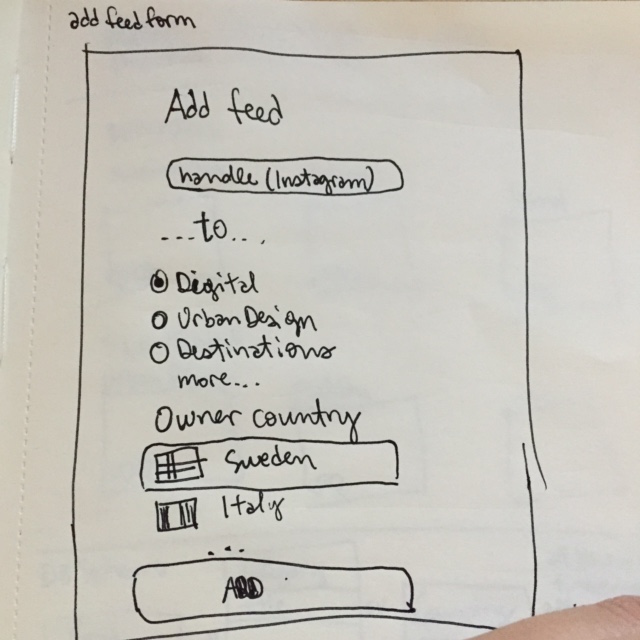 add feed form
Add feed
handle (Instagram)
...to...
Digital
Urban Design
Destinations
more...
Owner country
Sweden
Italy
...
ADD